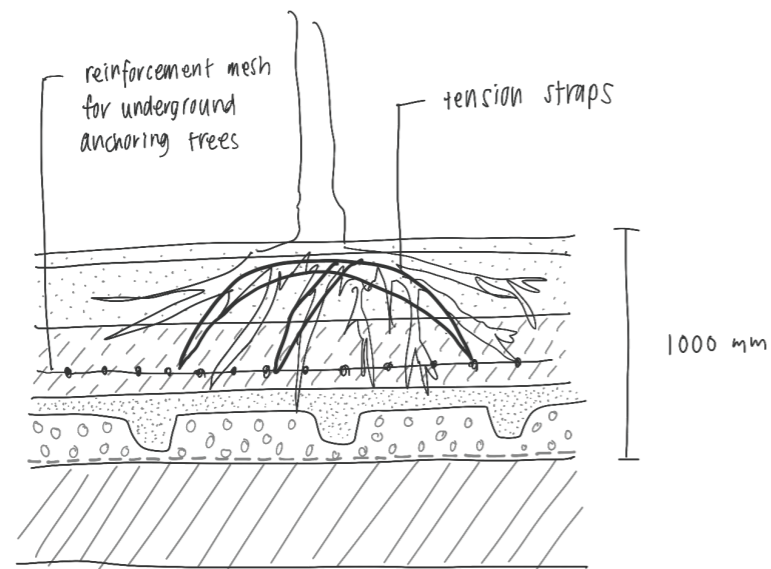 reinforcement mesh
for underground
anchoring trees
tension straps
1000 mm